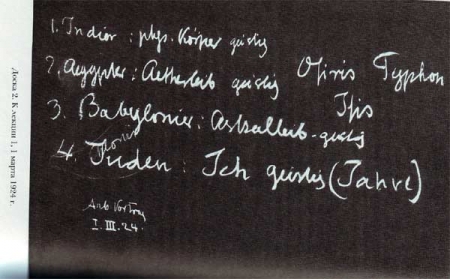 1. Indier : phys. Körper geistig
2. Aegypter : Aetherleib geistig Osiris Typhon
Isis
3. Babylonier : Astralleib - geistig
4. Juden : Ich geistig (Jahve)
Arb. Vortrag
I. III. 24.
Доска 2. К лекции 1, 1 марта 1924 г.